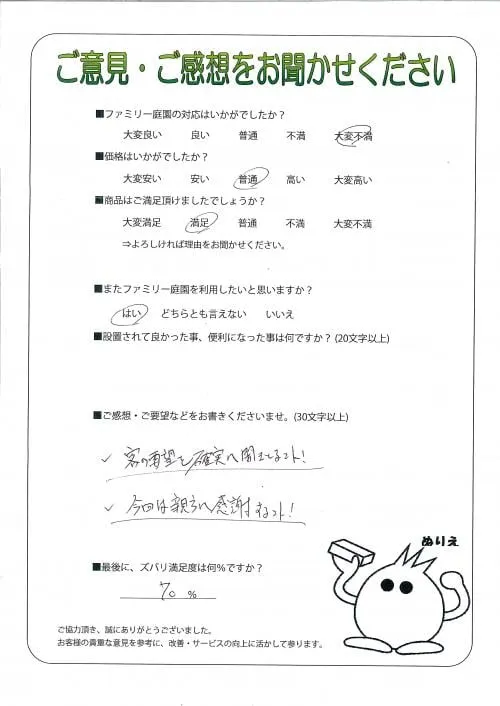 ご意見・ご感想をお聞かせください
■ファミリー庭園の対応はいかがでしたか？
大変良い 良い 普通 不満 大変不満
■価格はいかがでしたか？
大変安い 安い 普通 高い 大変高い
■商品はご満足頂けましたでしょうか？
大変満足 満足 普通 不満 大変不満
⇒よろしければ理由をお聞かせください。
■またファミリー庭園を利用したいと思いますか？
はい どちらとも言えない いいえ
■設置されて良かった事、便利になった事は何ですか？(20文字以上)
■ご感想・ご要望などをお書きくださいませ。(30文字以上)
✓ 客の要望を確実に聞きとるコト！
✓ 今回は親方に感謝するコト！
ぬりえ
■最後に、ズバリ満足度は何％ですか？
70 ％
ご協力頂き、誠にありがとうございました。
お客様の貴重な意見を参考に、改善・サービスの向上に活かして参ります。